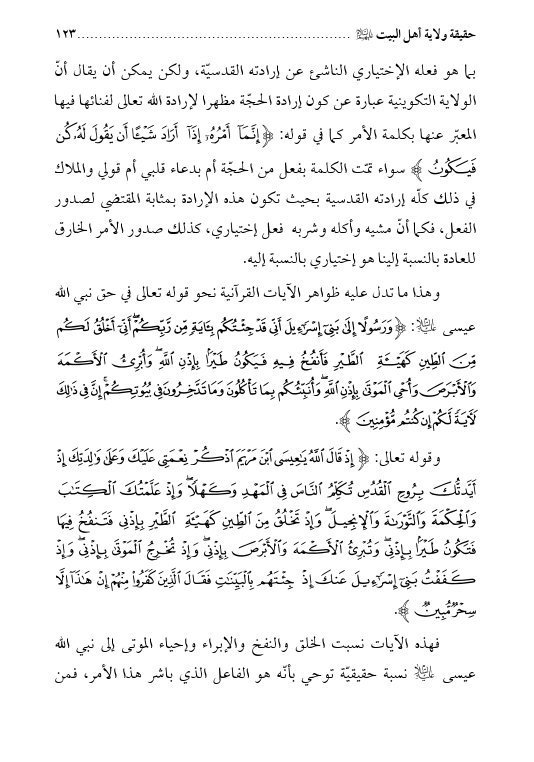 حقيقة ولاية أهل البيت عليهم السلام ................................................................ ١٢٣
بما هو فعله الإختياري الناشئ عن إرادته القدسيّة، ولكن يمكن أن يقال أنّ
الولاية التكوينية عبارة عن كون إرادة الحجّة مظهرا لإرادة الله تعالى لفنائها فيها
المعبّر عنها بكلمة الأمر كما في قوله: ﴿إِنَّمَآ أَمْرُهُۥٓ إِذَآ أَرَادَ شَيْـًٔا أَن يَقُولَ لَهُۥ كُن
فَيَكُونُ﴾ سواء تمّت الكلمة بفعل من الحجّة أم بدعاء قلبي أم قولي والملاك
في ذلك كلّه إرادته القدسية بحيث تكون هذه الإرادة بمثابة المقتضي لصدور
الفعل، فكما أنّ مشيه وأكله وشربه فعل إختياري، كذلك صدور الأمر الخارق
للعادة بالنسبة إلينا هو إختياري بالنسبة إليه.
وهذا ما تدل عليه ظواهر الآيات القرآنية نحو قوله تعالى في حق نبي الله
عيسى عليه السلام: ﴿وَرَسُولًا إِلَىٰ بَنِىٓ إِسْرَٰٓءِيلَ أَنِّى قَدْ جِئْتُكُم بِـَٔايَةٍ مِّن رَّبِّكُمْ ۖ أَنِّىٓ أَخْلُقُ لَكُم
مِّنَ ٱلطِّينِ كَهَيْـَٔةِ ٱلطَّيْرِ فَأَنفُخُ فِيهِ فَيَكُونُ طَيْرًۢا بِإِذْنِ ٱللَّهِ ۖ وَأُبْرِئُ ٱلْأَكْمَهَ
وَٱلْأَبْرَصَ وَأُحْىِ ٱلْمَوْتَىٰ بِإِذْنِ ٱللَّهِ ۖ وَأُنَبِّئُكُم بِمَا تَأْكُلُونَ وَمَا تَدَّخِرُونَ فِى بُيُوتِكُمْ ۚ إِنَّ فِى ذَٰلِكَ
لَـَٔايَةً لَّكُمْ إِن كُنتُم مُّؤْمِنِينَ﴾.
وقوله تعالى: ﴿إِذْ قَالَ ٱللَّهُ يَٰعِيسَى ٱبْنَ مَرْيَمَ ٱذْكُرْ نِعْمَتِى عَلَيْكَ وَعَلَىٰ وَٰلِدَتِكَ إِذْ
أَيَّدتُّكَ بِرُوحِ ٱلْقُدُسِ تُكَلِّمُ ٱلنَّاسَ فِى ٱلْمَهْدِ وَكَهْلًا ۖ وَإِذْ عَلَّمْتُكَ ٱلْكِتَٰبَ
وَٱلْحِكْمَةَ وَٱلتَّوْرَىٰةَ وَٱلْإِنجِيلَ ۖ وَإِذْ تَخْلُقُ مِنَ ٱلطِّينِ كَهَيْـَٔةِ ٱلطَّيْرِ بِإِذْنِى فَتَنفُخُ فِيهَا
فَتَكُونُ طَيْرًۢا بِإِذْنِى ۖ وَتُبْرِئُ ٱلْأَكْمَهَ وَٱلْأَبْرَصَ بِإِذْنِى ۖ وَإِذْ تُخْرِجُ ٱلْمَوْتَىٰ بِإِذْنِى ۖ وَإِذْ
كَفَفْتُ بَنِىٓ إِسْرَٰٓءِيلَ عَنكَ إِذْ جِئْتَهُم بِٱلْبَيِّنَٰتِ فَقَالَ ٱلَّذِينَ كَفَرُوا۟ مِنْهُمْ إِنْ هَٰذَآ إِلَّا
سِحْرٌ مُّبِينٌ﴾.
فهذه الآيات نسبت الخلق والنفخ والإبراء وإحياء الموتى إلى نبي الله
عيسى عليه السلام نسبة حقيقيّة توحي بأنّه هو الفاعل الذي باشر هذا الأمر، فمن